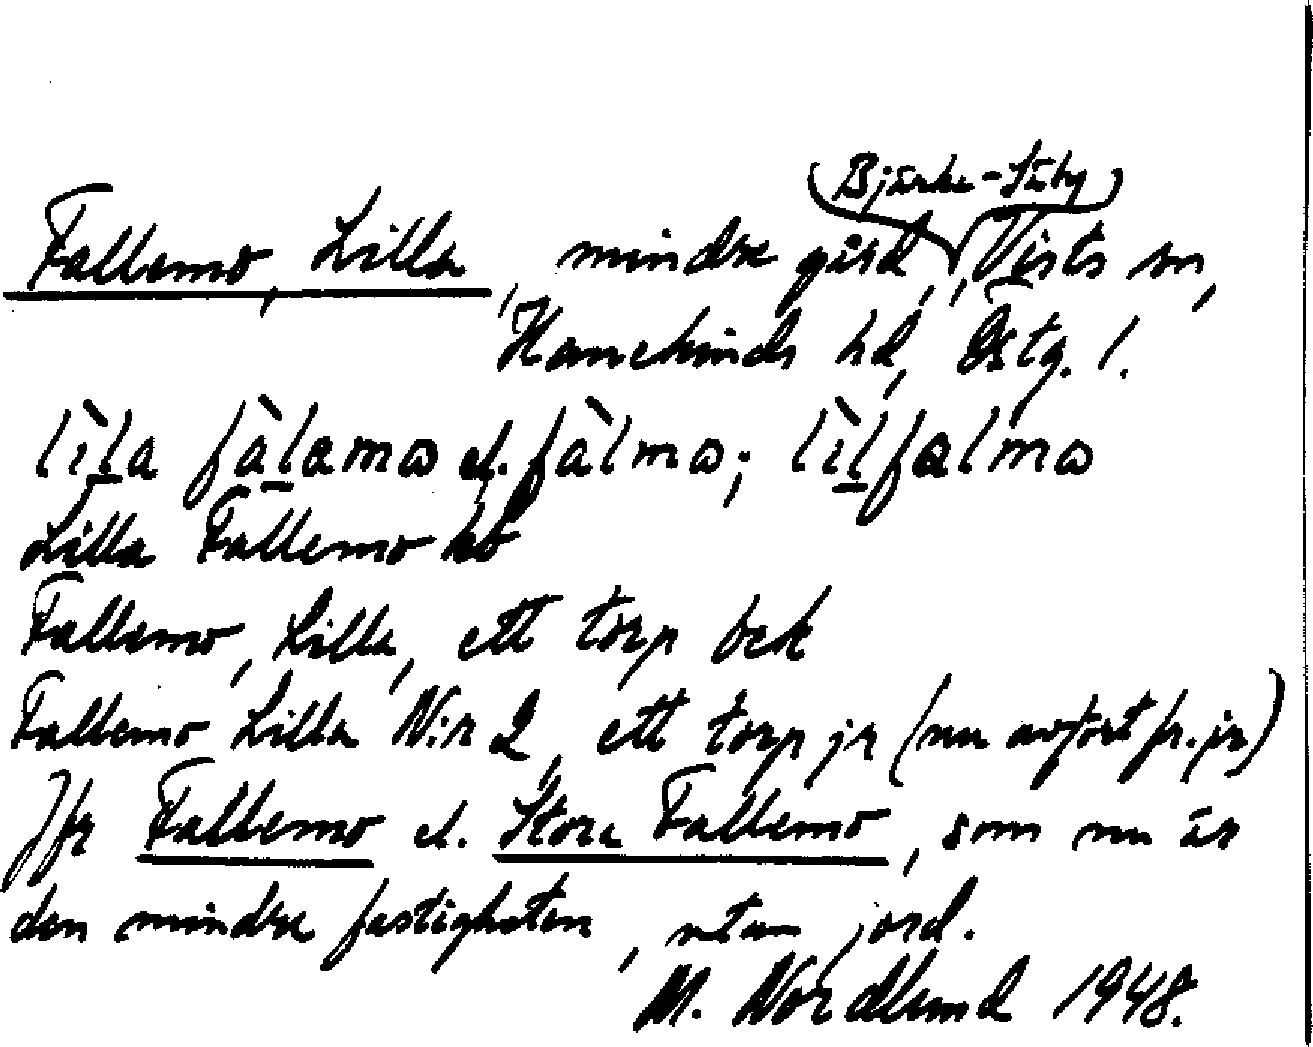 (Bjärka-Säby)
Fallemo, Lilla, mindre gård, Vists sn,
Hanekinds hd, Östg. l.
lìla fàlamω el. fàlmω; lìlfalmω
Lilla Fallemo kb
Fallemo, Lilla, ett torp ock
Fallemo Lilla N:r 2, ett torp jr (nu avfört fr. jr)
Jfr Fallemo el. Stora Fallemo, som nu är
den mindre fastigheten, utan jord.
M. Nordlund 1948.